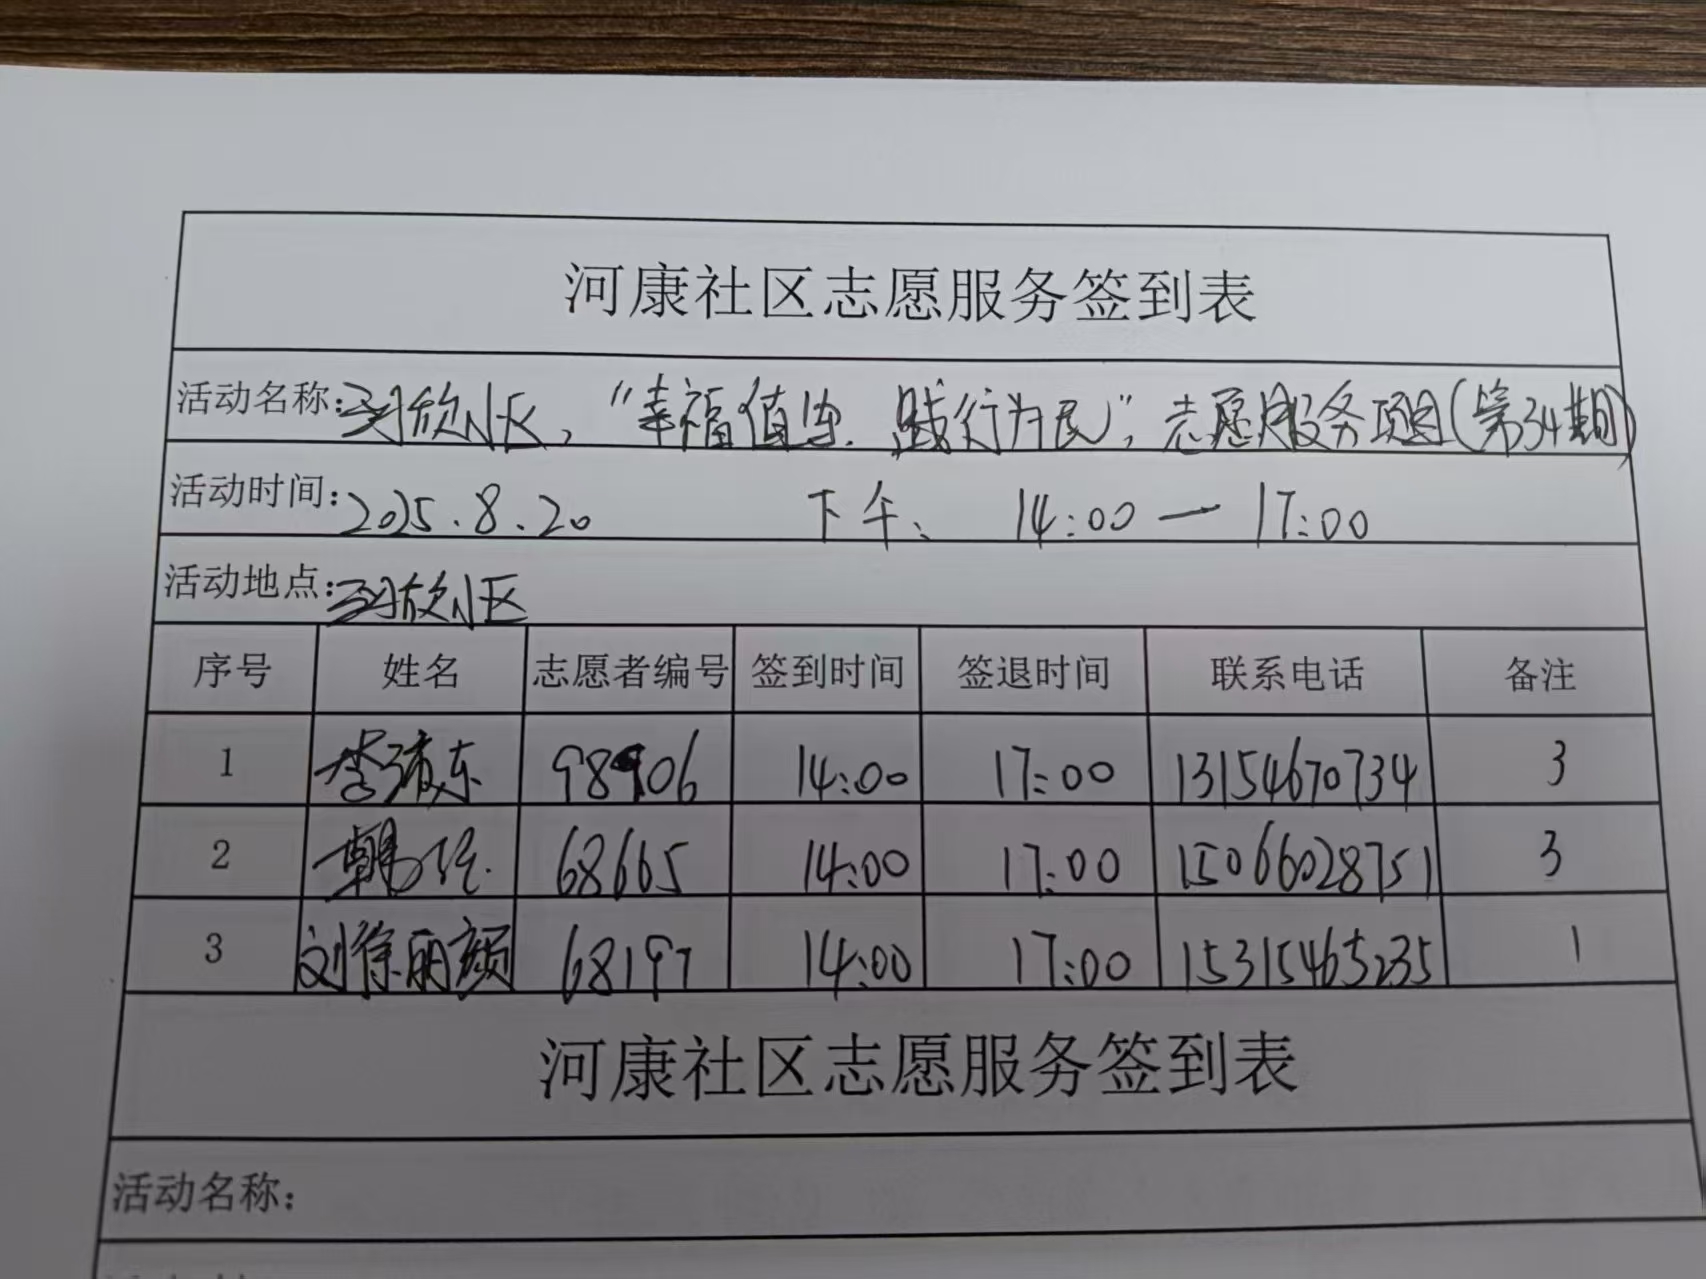 河康社区志愿服务签到表
活动名称: 欣小区,“幸福值, 践行为民”, 志愿服务项目(第34期)
活动时间: 2025.8.20 下午、 14:00 — 17:00
活动地点: 欣小区
序号 姓名 志愿者编号 签到时间 签退时间 联系电话 备注
1 李东 98906 14:00 17:00 13154670734 3
2 韩 68665 14:00 17:00 15066028751 3
3 刘徐丽颜 68197 14:00 17:00 15315465235 1
河康社区志愿服务签到表
活动名称: